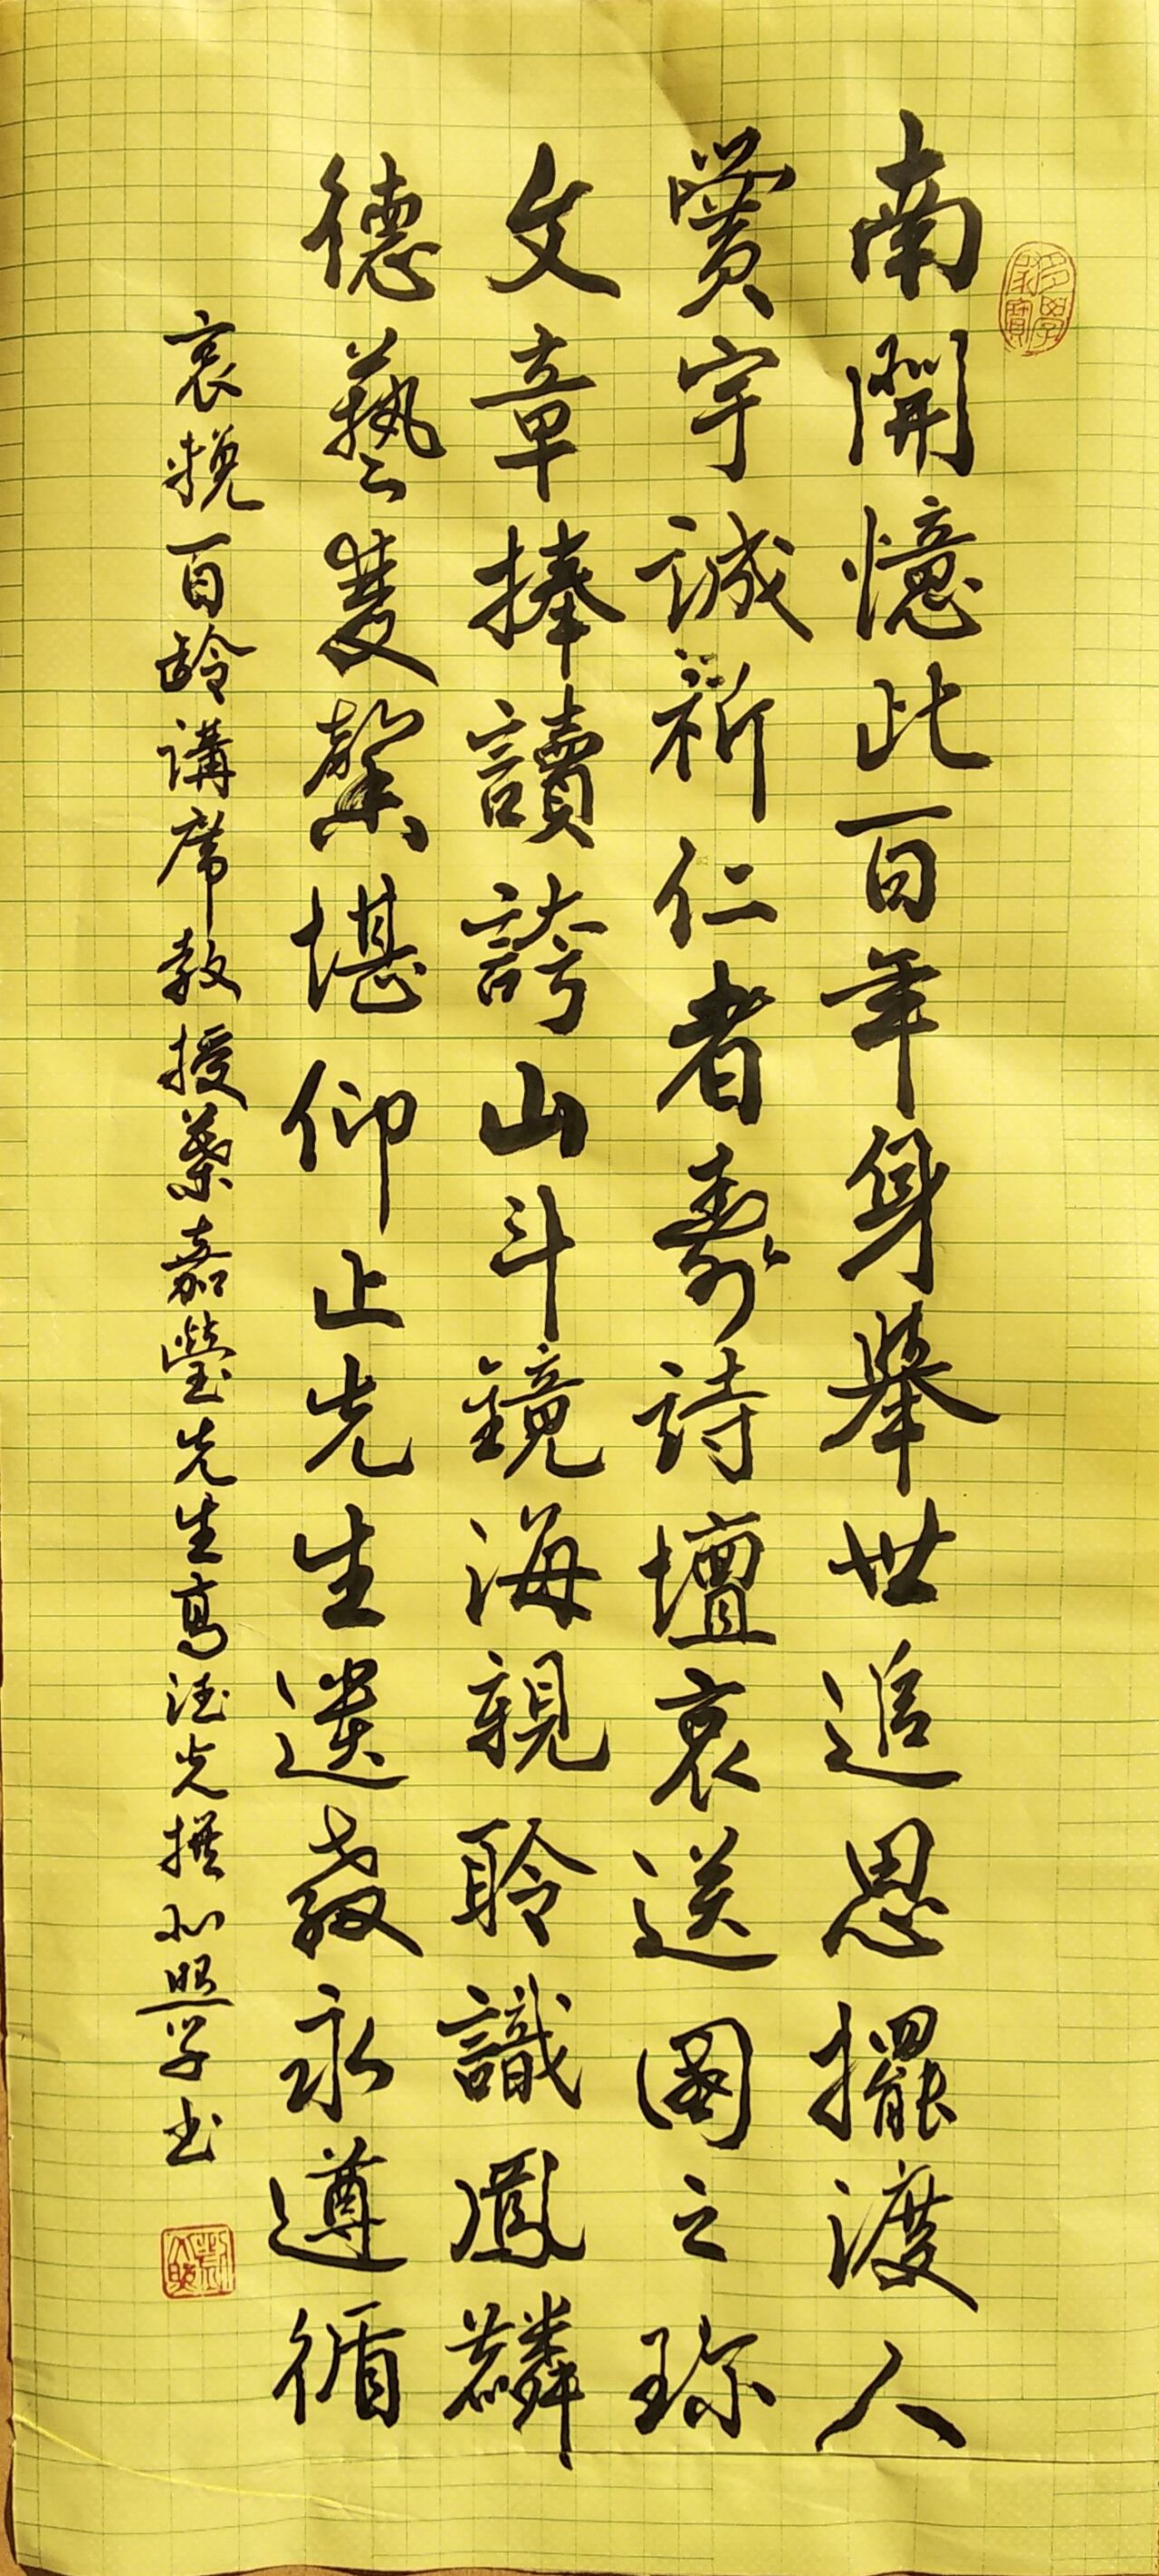 南開憶此百年身舉世追思擺渡人
黌宇誠祈仁者壽詩壇哀送國之珍
文章捧讀誇山斗鏡海親聆識鳳麟
德藝雙馨堪仰止先生遺教永遵循
哀輓百齡講席教授葉嘉瑩先生高光撰照学书